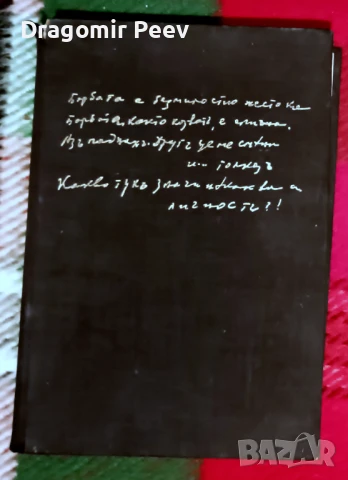 Dragomir Peev
Борбата е безмилостно жестока
Борбата, както казват, е епична.
Азъ паднахъ. Другъ ще ме смени
и... толкозъ
Какво тукъ значи някаква си
личность?!
BAZAR